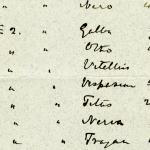 " " Nero
E 2. " Galba
" " Otho
" " Vitellius
" " Vespasian
" " Titus 2
" " Nerva
" " Trajan